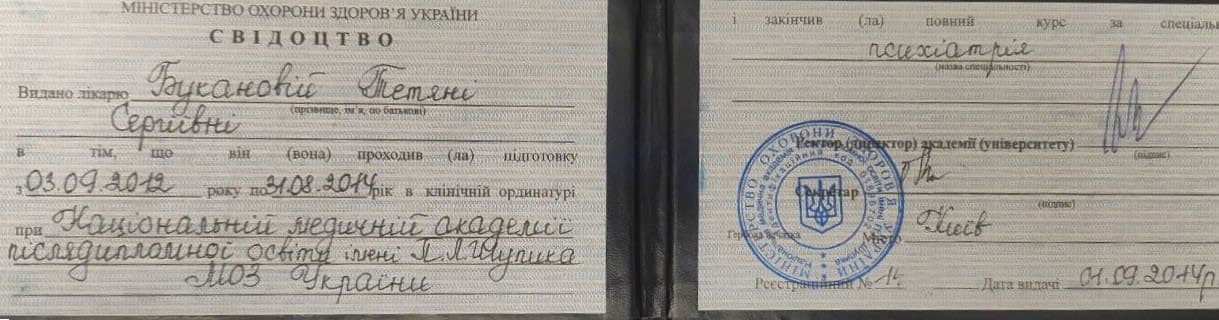 МІНІСТЕРСТВО ОХОРОНИ ЗДОРОВ'Я УКРАЇНИ
СВІДОЦТВО
Видано лікарю Букановій Тетяні
(прізвище, ім'я, по батькові)
Сергіївні
в тім, що він (вона) проходив (ла) підготовку
з 03.09.2012 року по 31.08.2014 рік в клінічній ординатурі
при Національній медичній академії
післядипломної освіти імені П.Л.Шупика
МОЗ України
і закінчив (ла) повний курс за спеціаль
психіатрія
(назва спеціальності)
Ректор (директор) академії (університету)
(підпис)
Секретар
(підпис)
Гербова печатка
Місто Київ
Реєстраційний № 14 Дата видачі 01.09.2014р
МІНІСТЕРСТВО ОХОРОНИ ЗДОРОВ'Я УКРАЇНИ